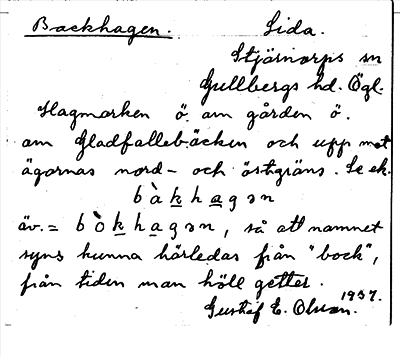 Backhagen. Lida.
Stjärnorps sn
Gullbergs hd. Ögl.
Hagmarken ö. om gården ö.
om Gladfallebäcken och upp mot
ägornas nord- och östgräns. Se ek.
bàkhagən
äv. = bòkhagən, så att namnet
syns kunna härledas från "bock",
från tiden man höll getter.
Gustaf E. Olsson. 1937.